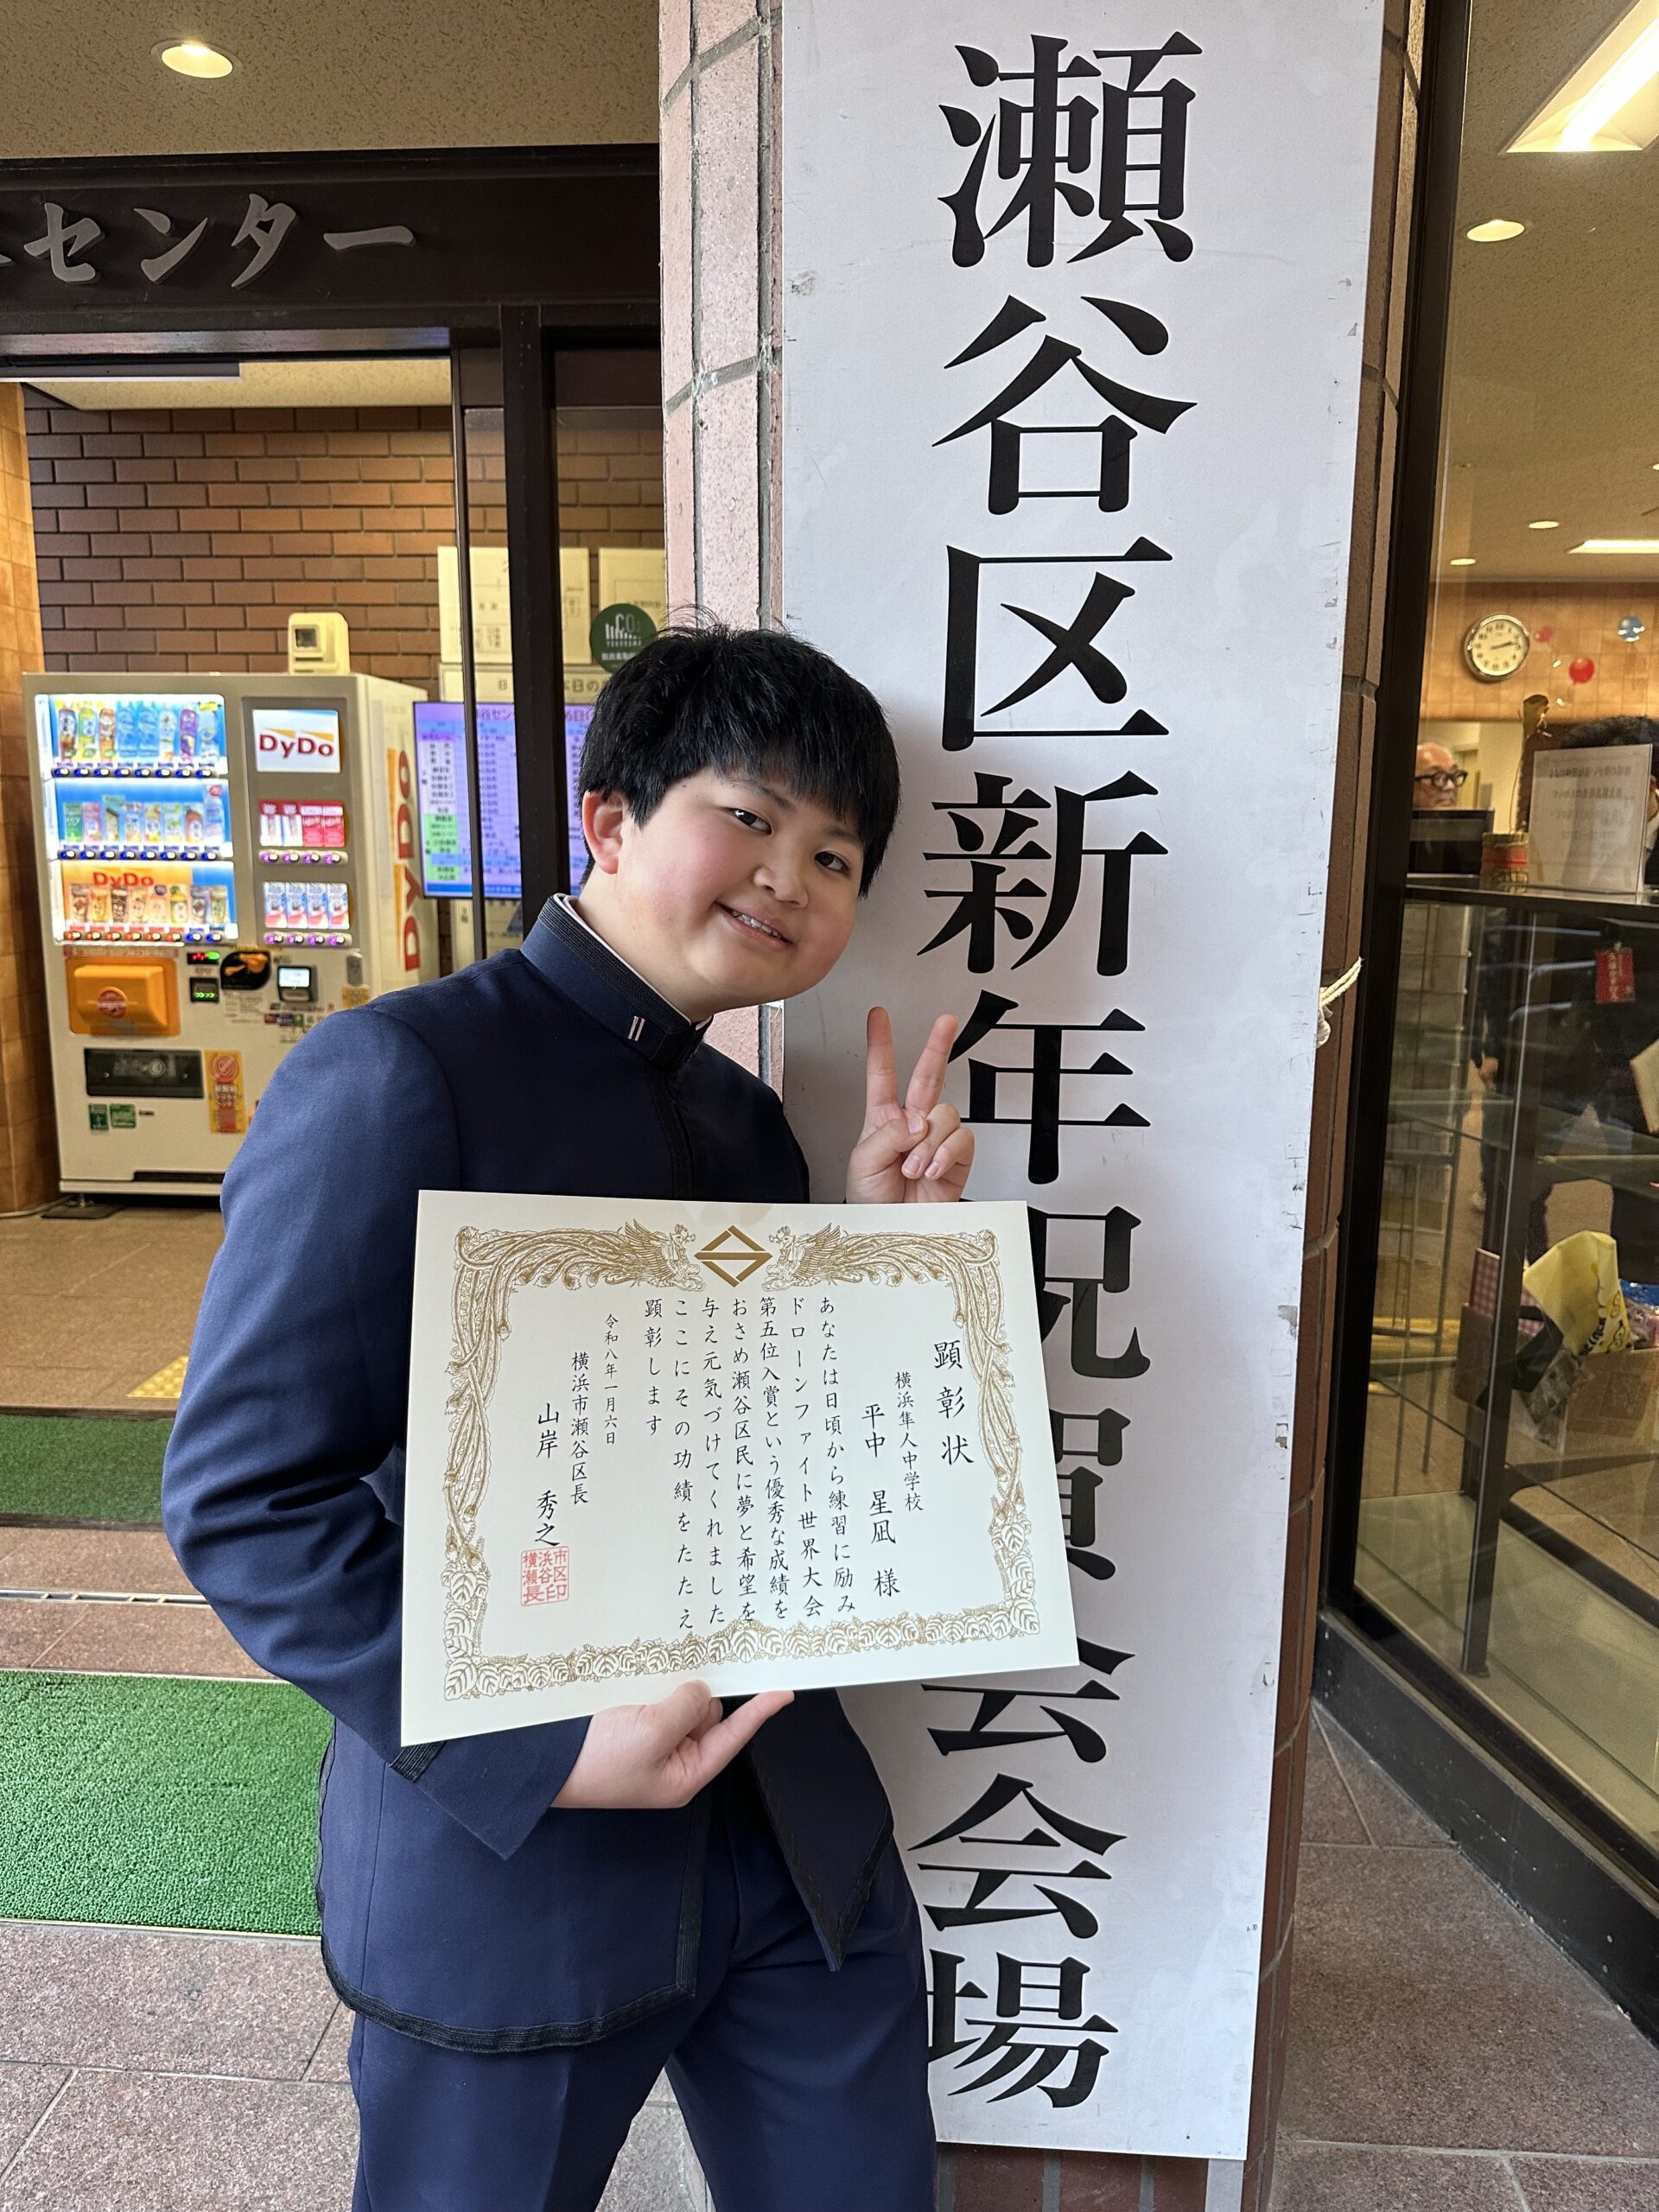 瀬谷区新年祝賀会会場
センター
DyDo
DyDo
DyDo
CO2
顕彰状
横浜隼人中学校
平中 星凪 様
あなたは日頃から練習に励み
ドローンファイト世界大会
第五位入賞という優秀な成績を
おさめ瀬谷区民に夢と希望を
与え元気づけてくれました
ここにその功績をたたえ
顕彰します
令和八年一月六日
横浜市瀬谷区長
山岸 秀之
横浜市
瀬谷区
長印